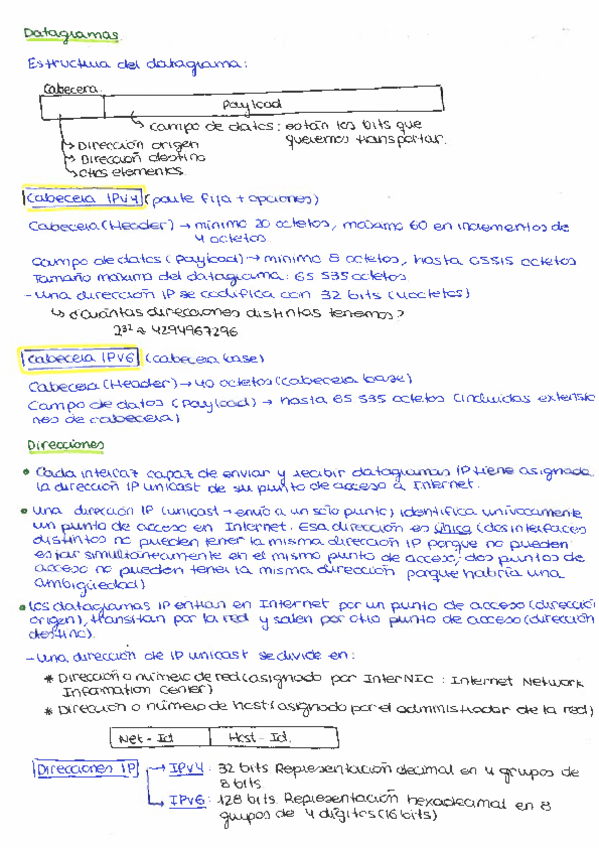 Datagramas
Estructura del datagrama:
Cabecera.
Payload
campo de datos: están los bits que
queremos transportar.
Dirección origen
Dirección destino
otros elementos.
Cabecera IPv4 (parte fija + opciones)
Cabecera (Header) → mínimo 20 octetos, máximo 60 en incrementos de
4 octetos
Campo de datos (Payload) → mínimo 8 octetos, hasta 65515 octetos
Tamaño máximo del datagrama: 65 535 octetos.
- Una dirección IP se codifica con 32 bits (4 octetos)
↳ ¿Cuántas direcciones distintas tenemos?
2³² ≈ 4294967296
Cabecera IPv6 (cabecera base)
Cabecera (Header) → 40 octetos (cabecera base)
Campo de datos (Payload) → hasta 65 535 octetos (incluidas extensio
nes de cabecera)
Direcciones
• Cada interfaz capaz de enviar y recibir datagramas IP tiene asignada
la dirección IP unicast de su punto de acceso a Internet.
• Una dirección IP (unicast → envío a un solo punto) identifica unívocamente
un punto de acceso en Internet. Esa dirección es única (dos interfaces
distintos no pueden tener la misma dirección IP porque no pueden
estar simultáneamente en el mismo punto de acceso; dos puntos de
acceso no pueden tener la misma dirección porque habría una
ambigüedad)
• Los datagramas IP entran en Internet por un punto de acceso (direcció
origen), transitan por la red y salen por otro punto de acceso (dirección
destino).
- Una dirección de IP unicast se divide en:
* Dirección o número de red (asignado por InterNIC: Internet Network
Information Center)
* Dirección o número de host (asignado por el administrador de la red)
Net-Id Host-Id.
Direcciones IP → IPv4: 32 bits Representación decimal en 4 grupos de
8 bits
IPv6: 128 bits. Representación hexadecimal en 8
grupos de 4 dígitos (16 bits)